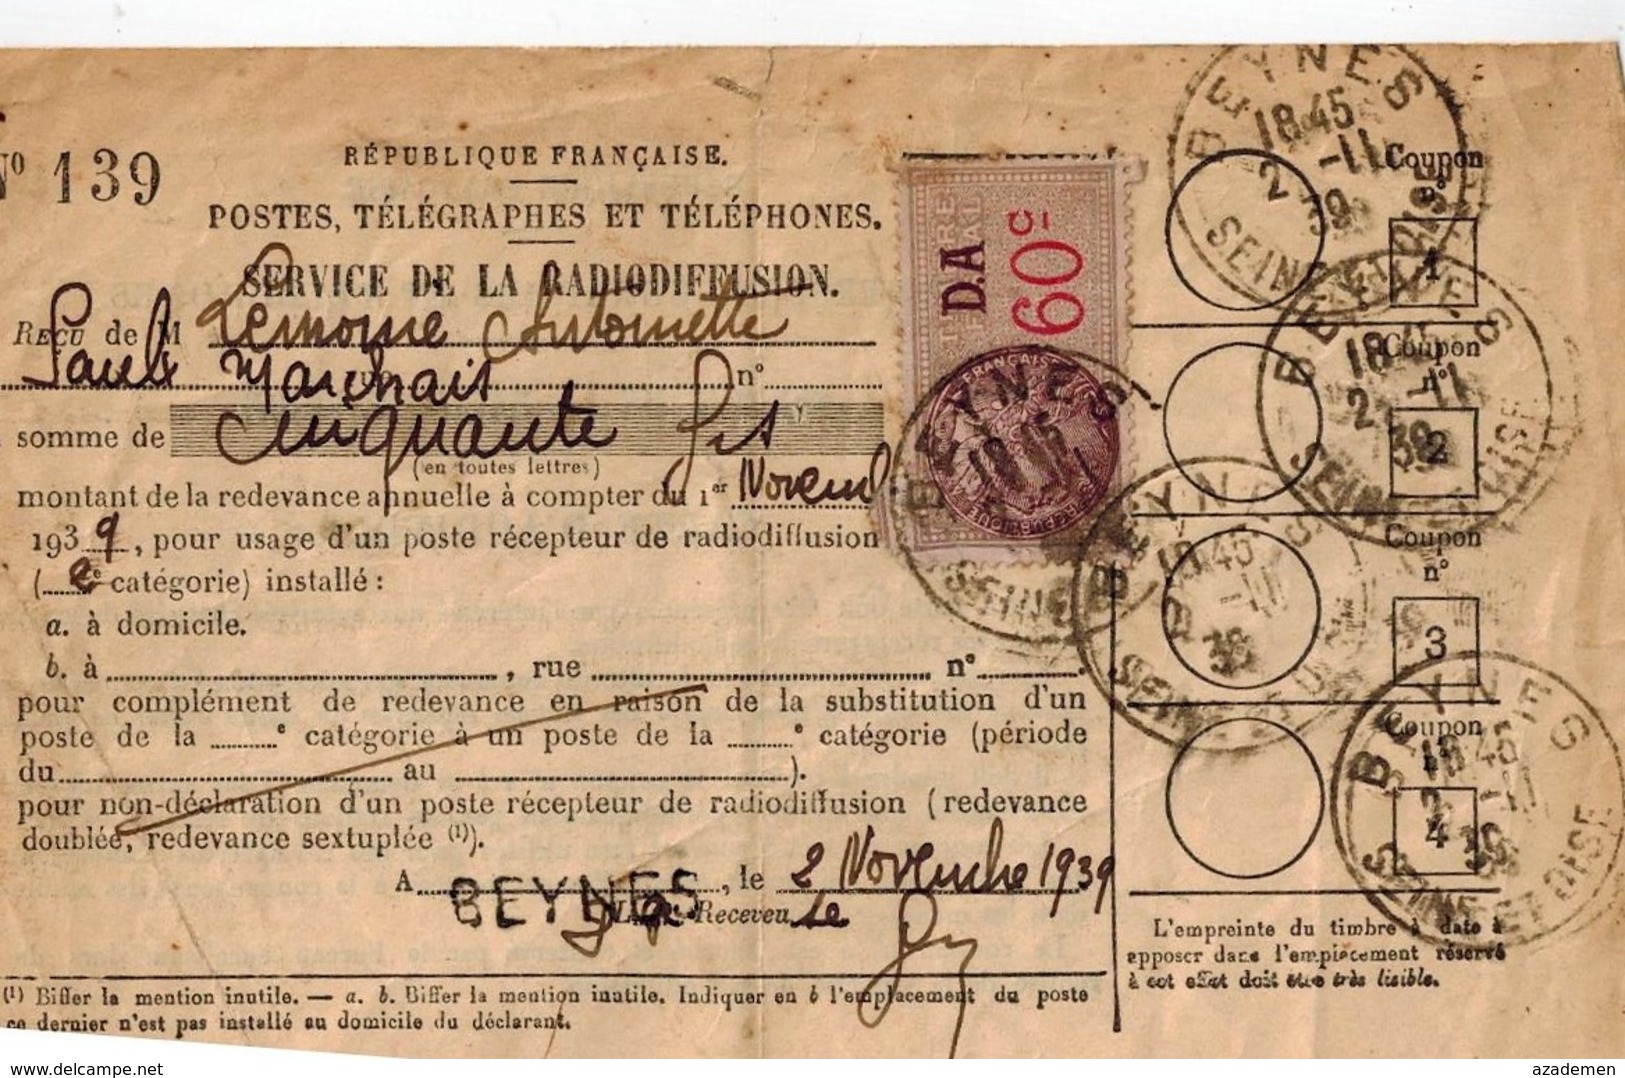 Nº 139
RÉPUBLIQUE FRANÇAISE.
POSTES, TÉLÉGRAPHES ET TÉLÉPHONES.
SERVICE DE LA RADIODIFFUSION.
REÇU de M Lemoine Antoinette
Marchais nº
somme de Cinquante
(en toutes lettres)
montant de la redevance annuelle à compter du 1er Novemb
1939, pour usage d'un poste récepteur de radiodiffusion
(2e catégorie) installé :
a. à domicile.
b. à , rue nº .
pour complément de redevance en raison de la substitution d'un
poste de la e catégorie à un poste de la e catégorie (période
du au ).
pour non-déclaration d'un poste récepteur de radiodiffusion (redevance
doublée, redevance sextuplée (1)).
A BEYNES, le 2 Novembre 1939
Receveu
(1) Biffer la mention inutile. — a. b. Biffer la mention inutile. Indiquer en b l'emplacement du poste
ce dernier n'est pas installé au domicile du déclarant.
D.A
60c
FRANÇAISE
BEYNES
18 45
2 -11
39
SEINE ET OISE
Coupon
nº
1
Coupon
nº
2
Coupon
nº
3
Coupon
nº
4
BEYNES
18 45
SEINE ET OISE
L'empreinte du timbre à date à
apposer dans l'emplacement réservé
à cet effet doit être très lisible.
delcampe.net
azademen